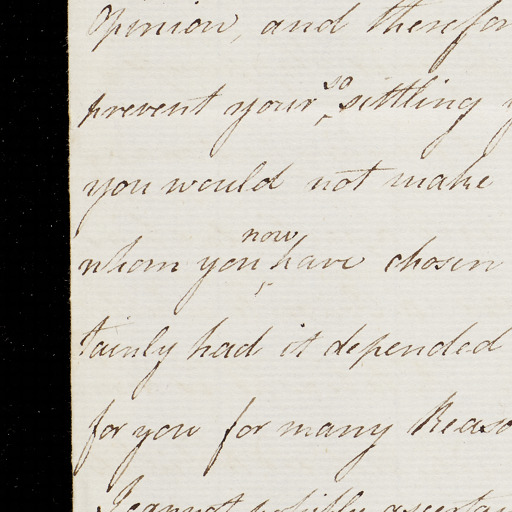 Opinion, and therefor
prevent your so settling y
you would not make
whom you now have chosen
tainly had it depended
for you for many Reaso
I cannot possibly ascertai